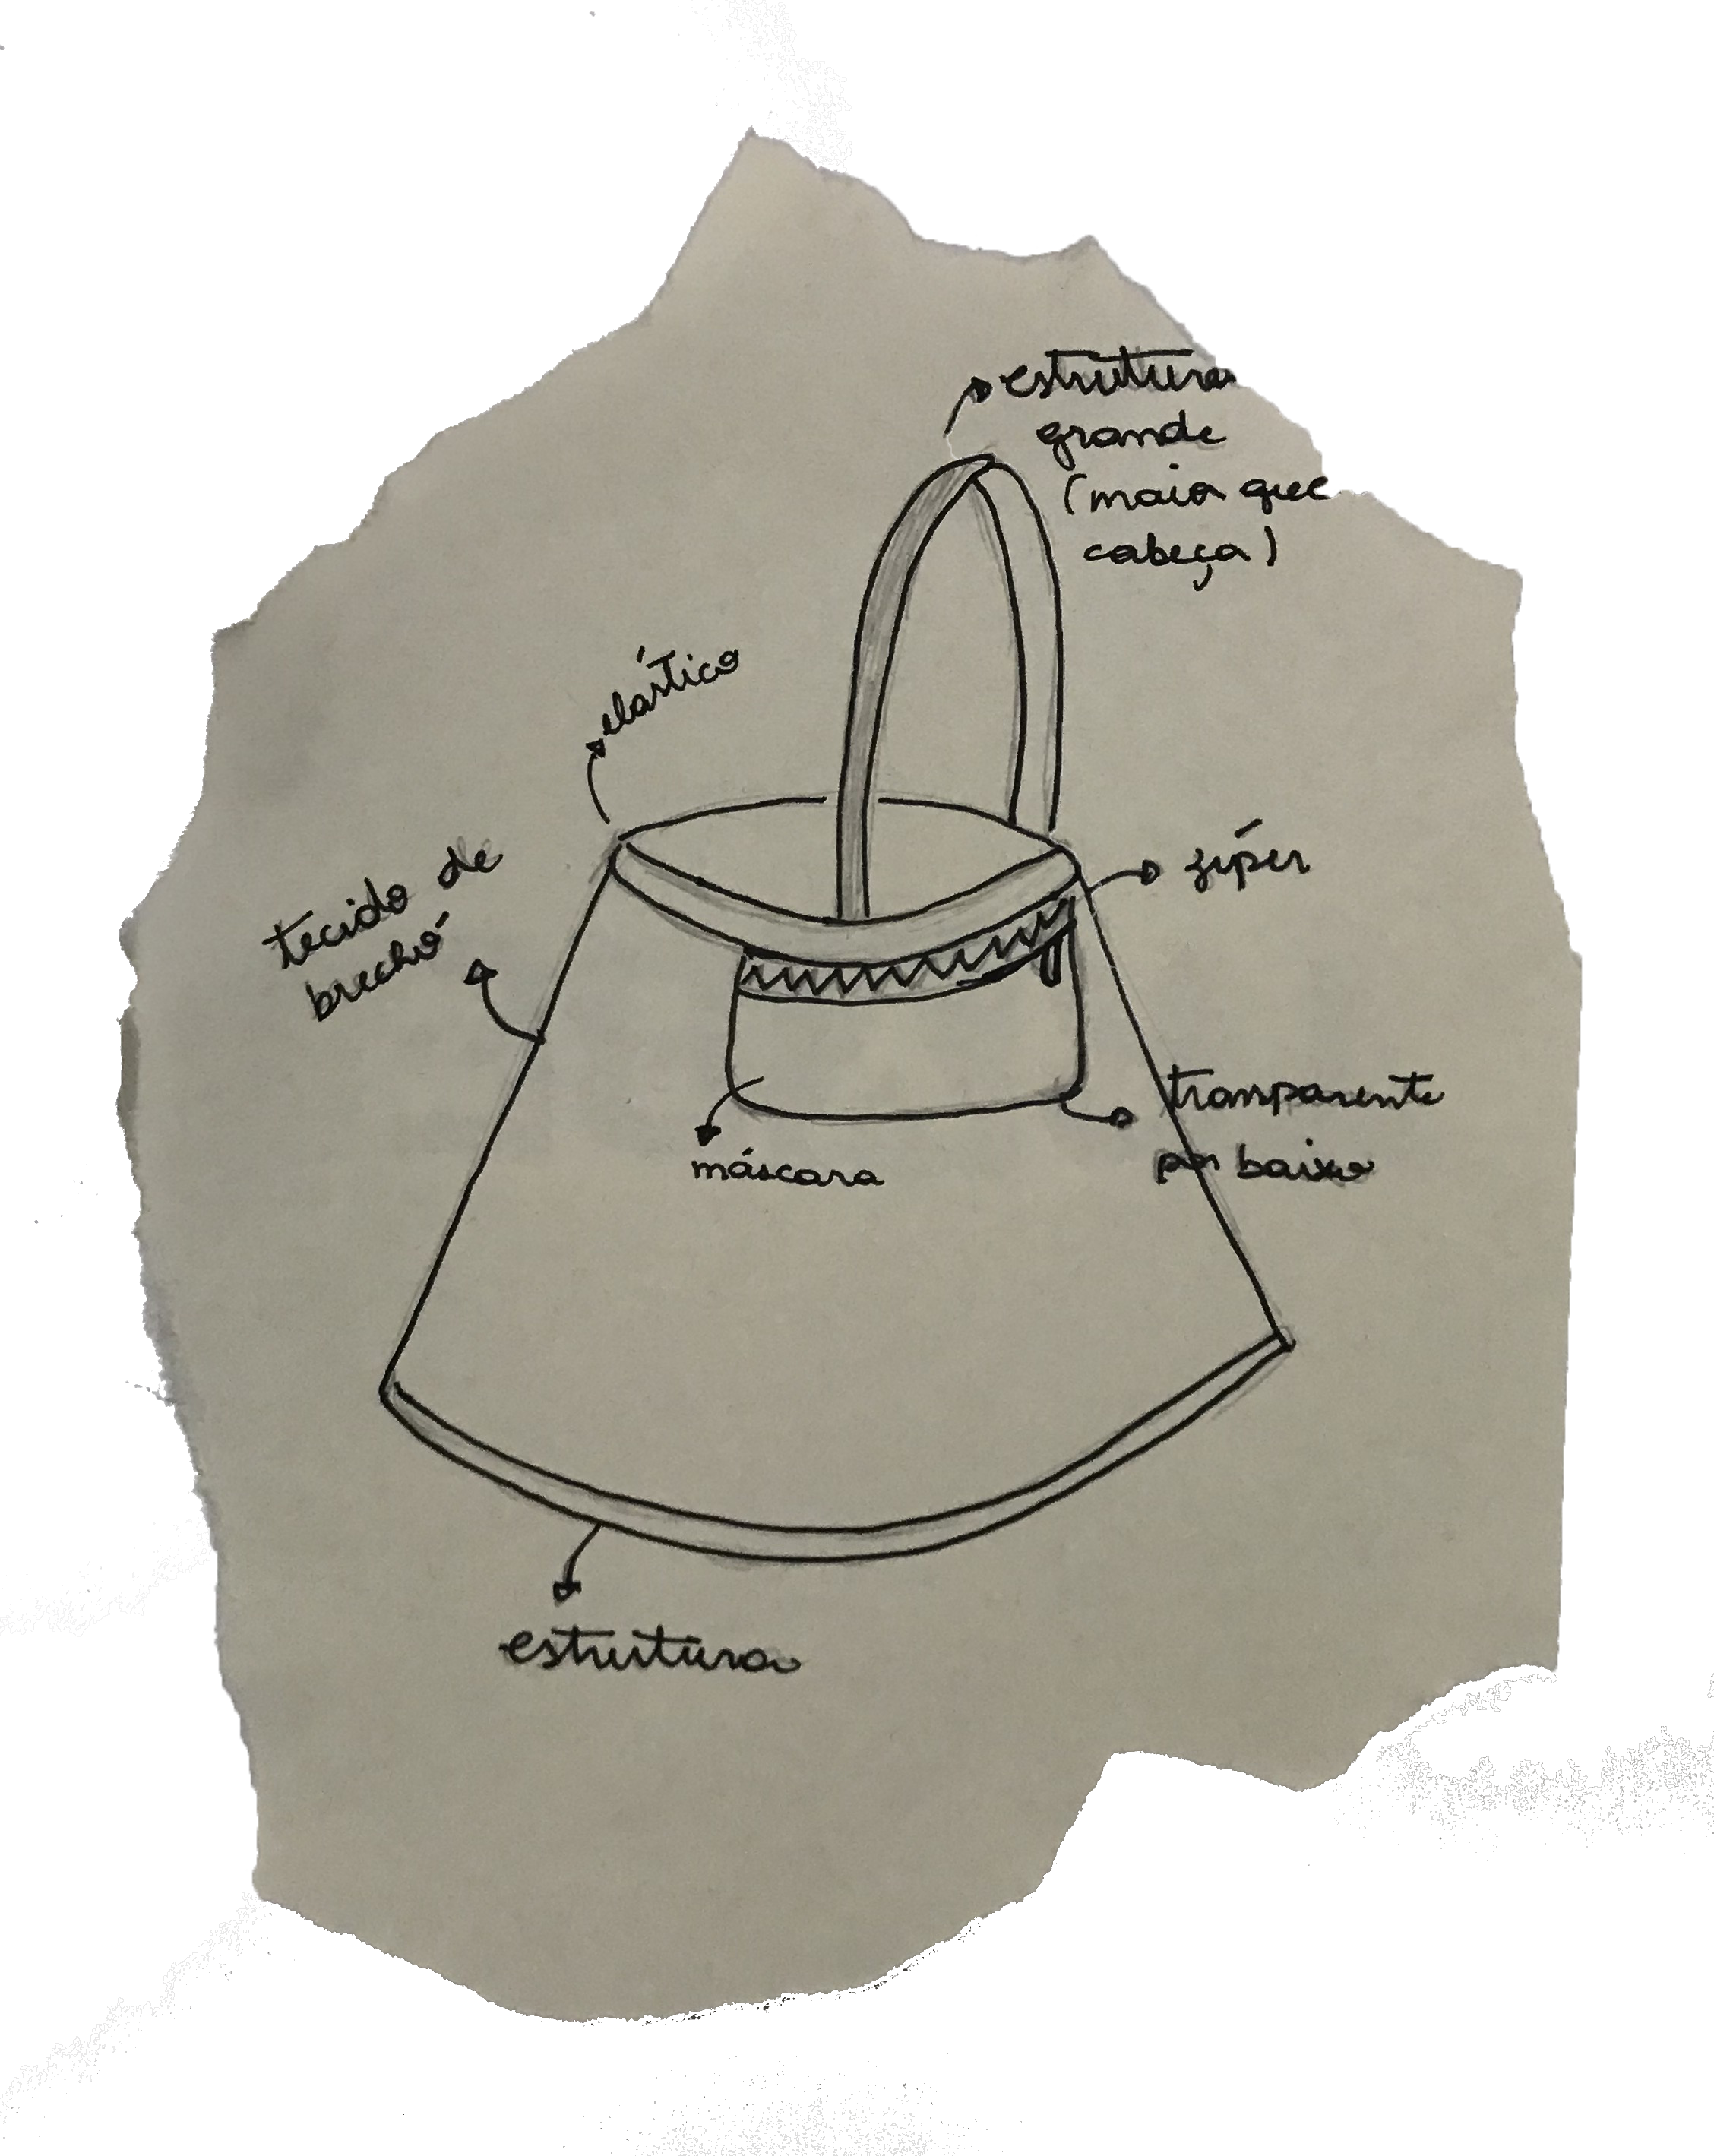 estrutura
grande
(maior que
cabeça)
elástico
tecido de
brechó
zíper
transparente
por baixo
máscara
estrutura